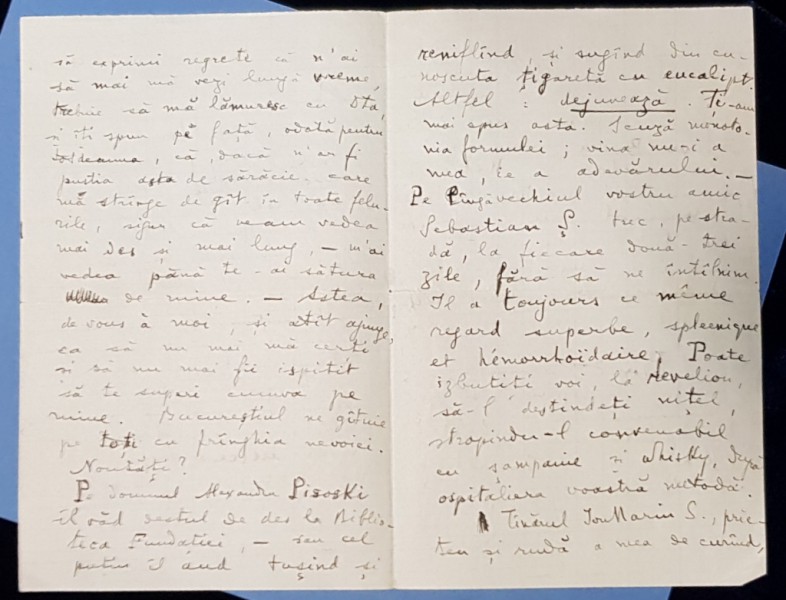 să exprimi regrete că n'ai
să mai mă vezi lungă vreme,
trebuie să mă lămuresc cu Dta,
și îți spun pe față, odată pentru
totdeauna, că, dacă n'ar fi
pustia asta de sărăcie care
mă strânge de gît în toate felu-
rile, sigur că ne-am vedea
mai des și mai lung, — m'ai
vedea până te-ai sătura
de mine. — Astea,
de vous à moi, și atît ajunge,
ca să nu mai mă cerți
și să nu mai fii ispitit
să te superi cumva pe
mine. Bucureștiul ne gîtuie
pe toți cu frînghia nevoiei.
Noutăți?
Pe domnul Alexandru Pisoski
îl văd destul de des la Biblio-
teca Fundației, — sau cel
puțin îl aud tușind și
reniflînd, și sugînd din cu-
noscuta țigaretă cu eucalipt.
Altfel: dejunează. Ți-am
mai spus asta. Scuză monoto-
nia formulei; vina nu-i a
mea, ie a adevărului. —
Pe lîngă vechiul vostru amic
Sebastian Ș. trec, pe stra-
dă, la fiecare două-trei
zile, fără să ne întîlnim.
Il a toujours ce même
regard superbe, spleenique
et hémorrhoidaire. Poate
izbutiți voi, la revelion,
să-l destindeți nițel,
stropindu-l convenabil
cu șampanie și whisky, după
ospitaliera voastră metodă.
Tînărul Ion Marin S., prie-
ten și rudă a mea de curînd,